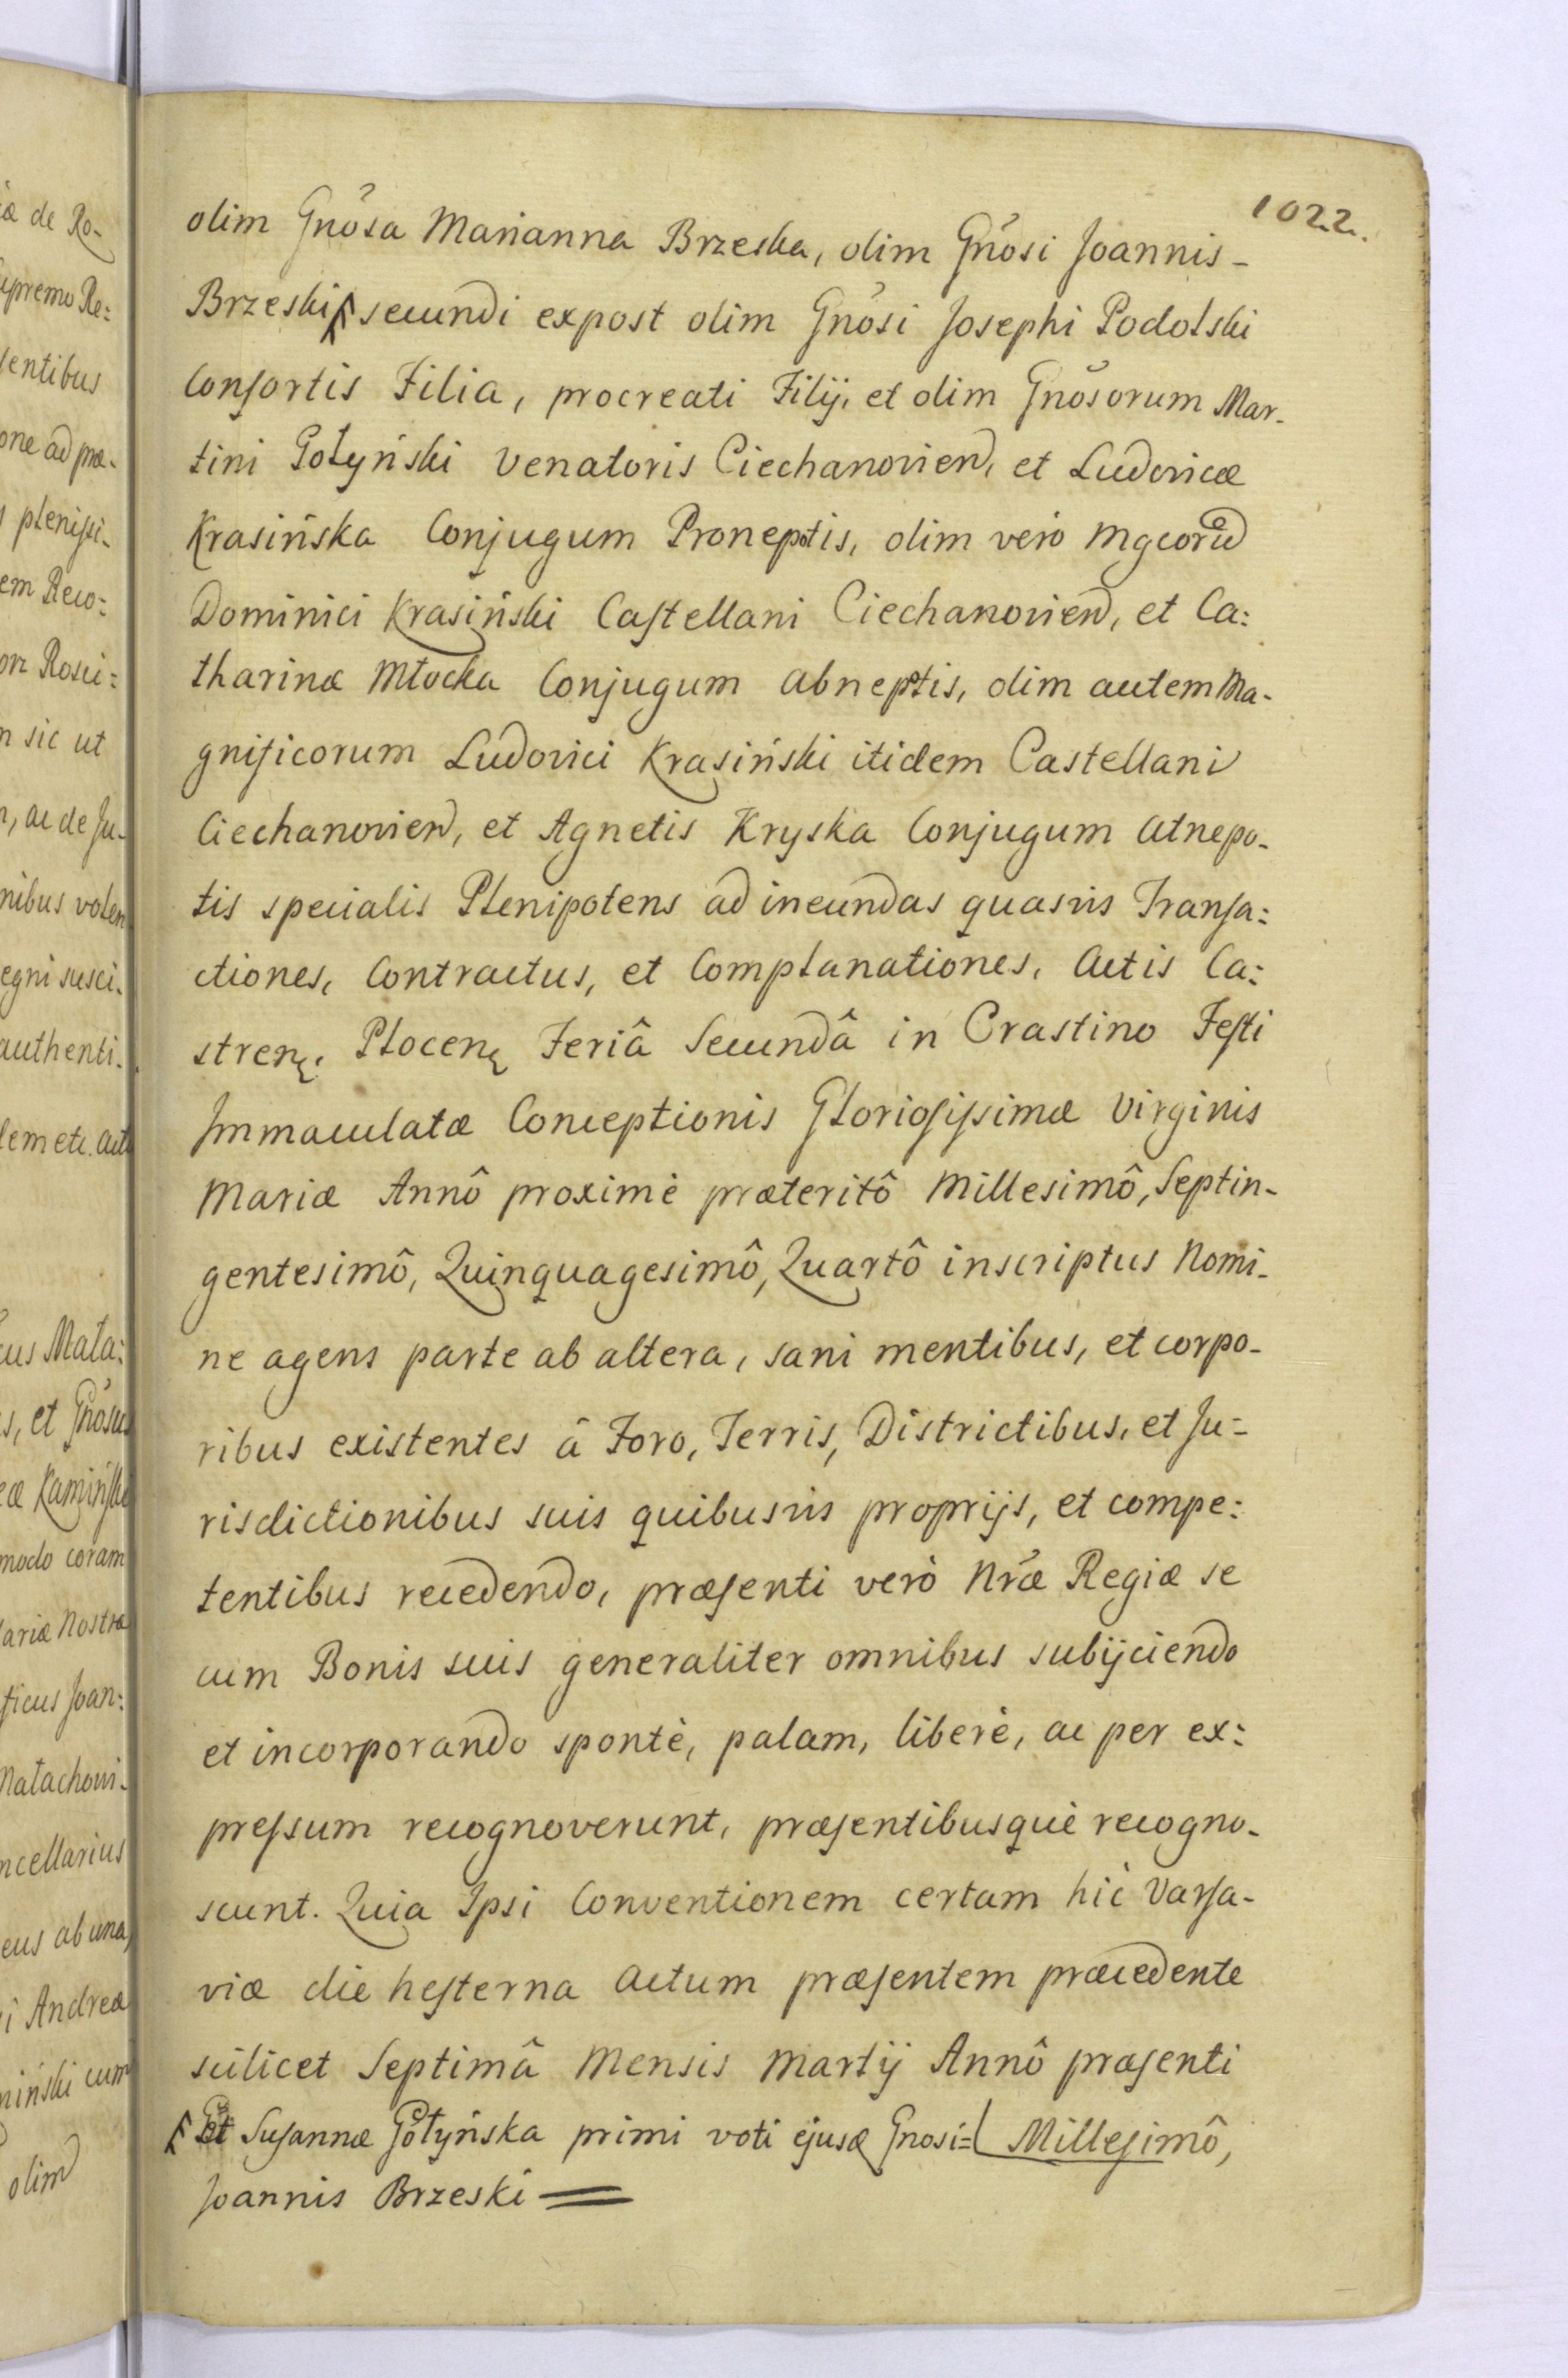 1022.
olim Gnõsa Marianna Brzeska, olim Gnõsi Joannis-
Brzeski secundi expost olim Gnõsi Josephi Podolski
Consortis Filia, procreati Filij, et olim Gnõsorum Mar-
tini Gołyński Venatoris Ciechanovien, et Ludovicæ
Krasińska Conjugum Pronepotis, olim verò Mgcoru
Dominici Krasiński Castellani Ciechanovien, et Ca:
tharinæ Młocka Conjugum abneptis, olim autem Ma-
gnificorum Ludovici Krasiński itidem Castellani
Ciechanovien, et Agnetis Kryska Conjugum Atnepo-
tis specialis Plenipotens ad ineundas quasvis Transa:
ctiones, Contractus, et Complanationes, Actis Ca:
stren. Plocen Feriâ Secundâ in Crastino Festi
Immaculatæ Conceptionis Gloriosissimæ Virginis
Mariæ Annô proximè præteritô Millesimô, Septin-
gentesimô, Quinquagesimô, Quartô inscriptus Nomi-
ne agens parte ab altera, sani mentibus, et corpo-
ribus existentes â Foro, Terris, Districtibus, et Ju=
risdictionibus suis quibusvis proprijs, et compe:
tentibus recedendo, præsenti verò Nræ Regiæ se
cum Bonis suis generaliter omnibus subijciendo
et incorporando spontè, palam, liberè, ac per ex:
pressum recognoverunt, præsentibusquè recogno-
scunt. Quia Ipsi Conventionem certam hìc Varsa-
viæ die hesterna Actum præsentem præcedente
scilicet Septimâ Mensis Martij Annô præsenti
Millesimô,
et Susannæ Gołyńska primi voti ejusq Gnosi=
Joannis Brzeski
iæ de Ro-
upremo Re:
sentibus
one ad præ-
plenissi-
em Reco:
Rosci=
n sic ut
, ac de Ju-
nibus volen
egni susci-
authenti-
dem etc. act
us Mała:
s, et Gnõsus
eæ Kamińsk
modo coram
lariæ Nostræ
ficus Joan:
Małachovi-
ncellarius
eus ab una
i Andreæ
miński cum
olim